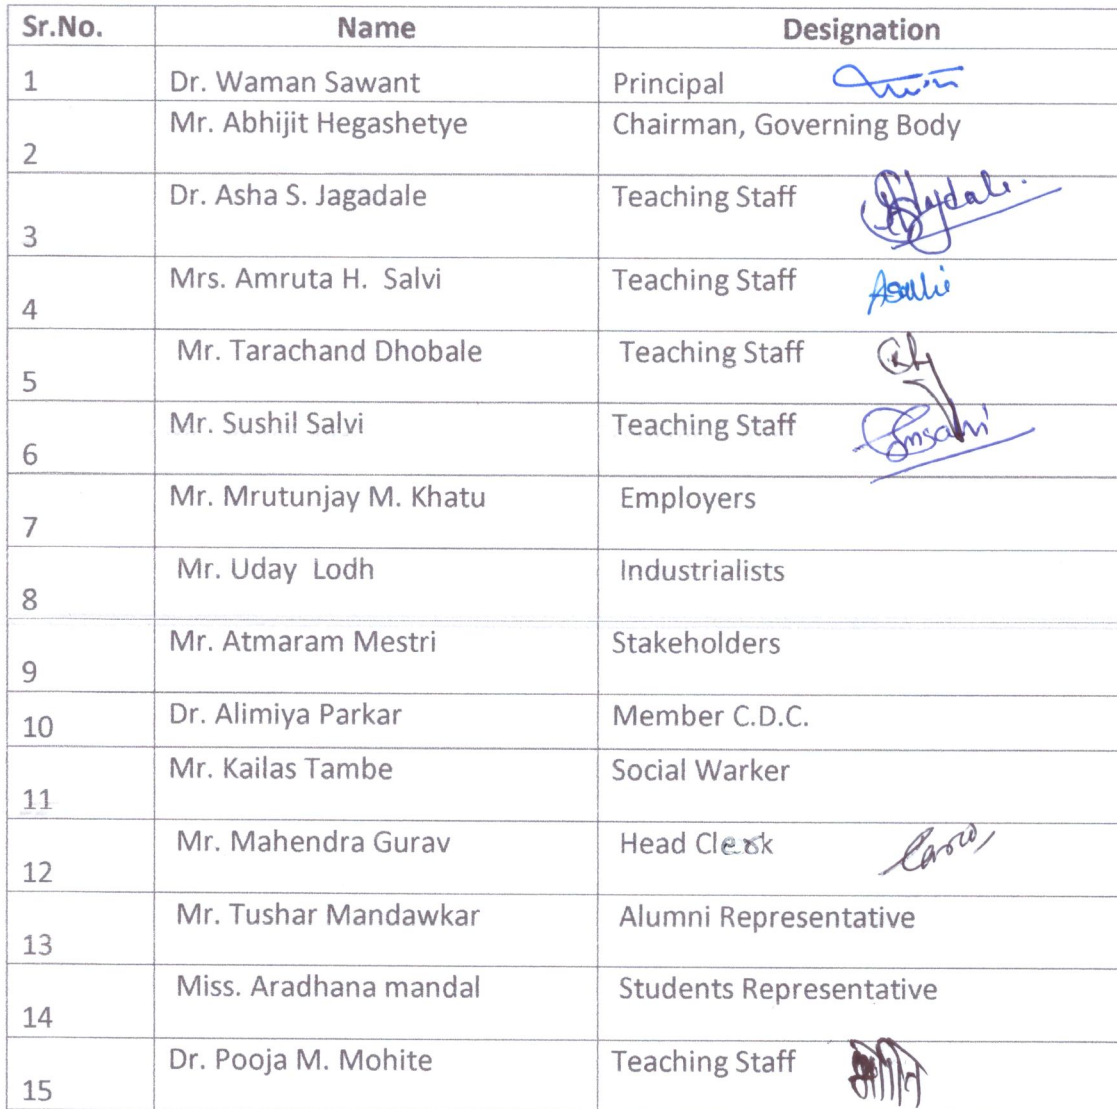 Sr.No. Name Designation
1 Dr. Waman Sawant Principal
2 Mr. Abhijit Hegashetye Chairman, Governing Body
3 Dr. Asha S. Jagadale Teaching Staff
4 Mrs. Amruta H. Salvi Teaching Staff
5 Mr. Tarachand Dhobale Teaching Staff
6 Mr. Sushil Salvi Teaching Staff
7 Mr. Mrutunjay M. Khatu Employers
8 Mr. Uday Lodh Industrialists
9 Mr. Atmaram Mestri Stakeholders
10 Dr. Alimiya Parkar Member C.D.C.
11 Mr. Kailas Tambe Social Warker
12 Mr. Mahendra Gurav Head Clerk
13 Mr. Tushar Mandawkar Alumni Representative
14 Miss. Aradhana mandal Students Representative
15 Dr. Pooja M. Mohite Teaching Staff